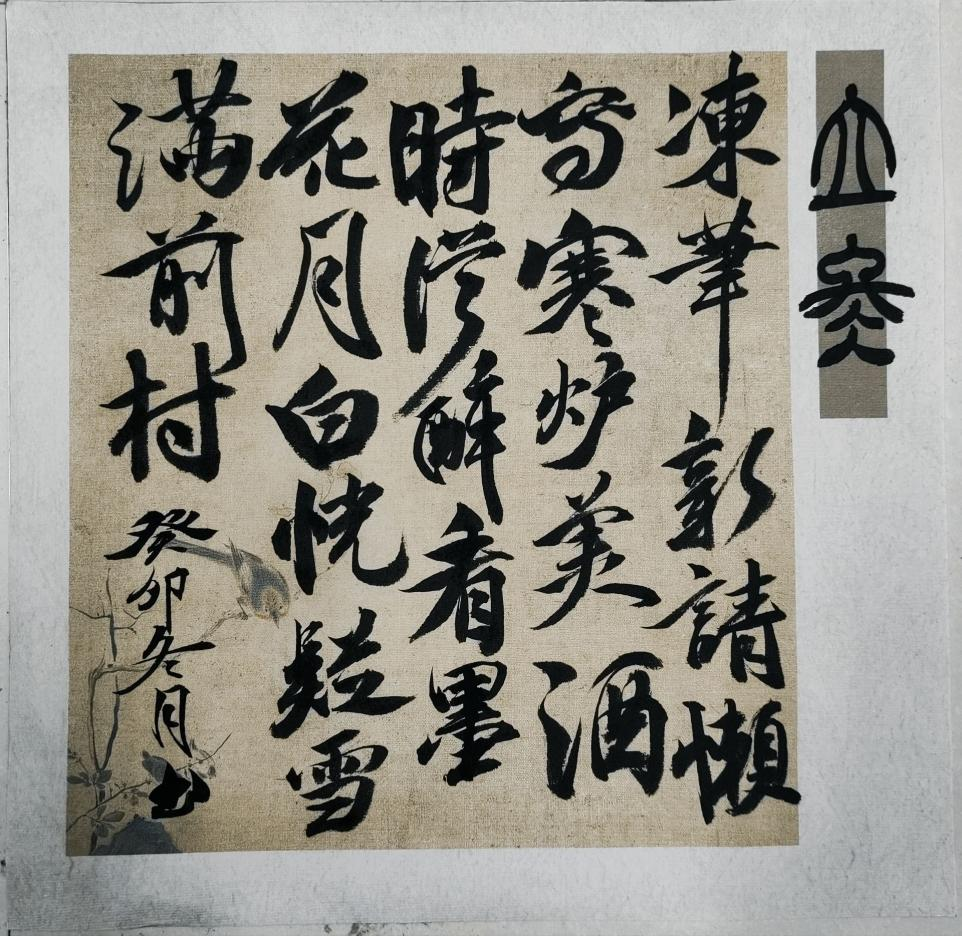 立冬
凍筆新請懶
寫寒炉美酒
時溫醉看墨
花月白恍疑雪
滿前村
癸卯冬月书